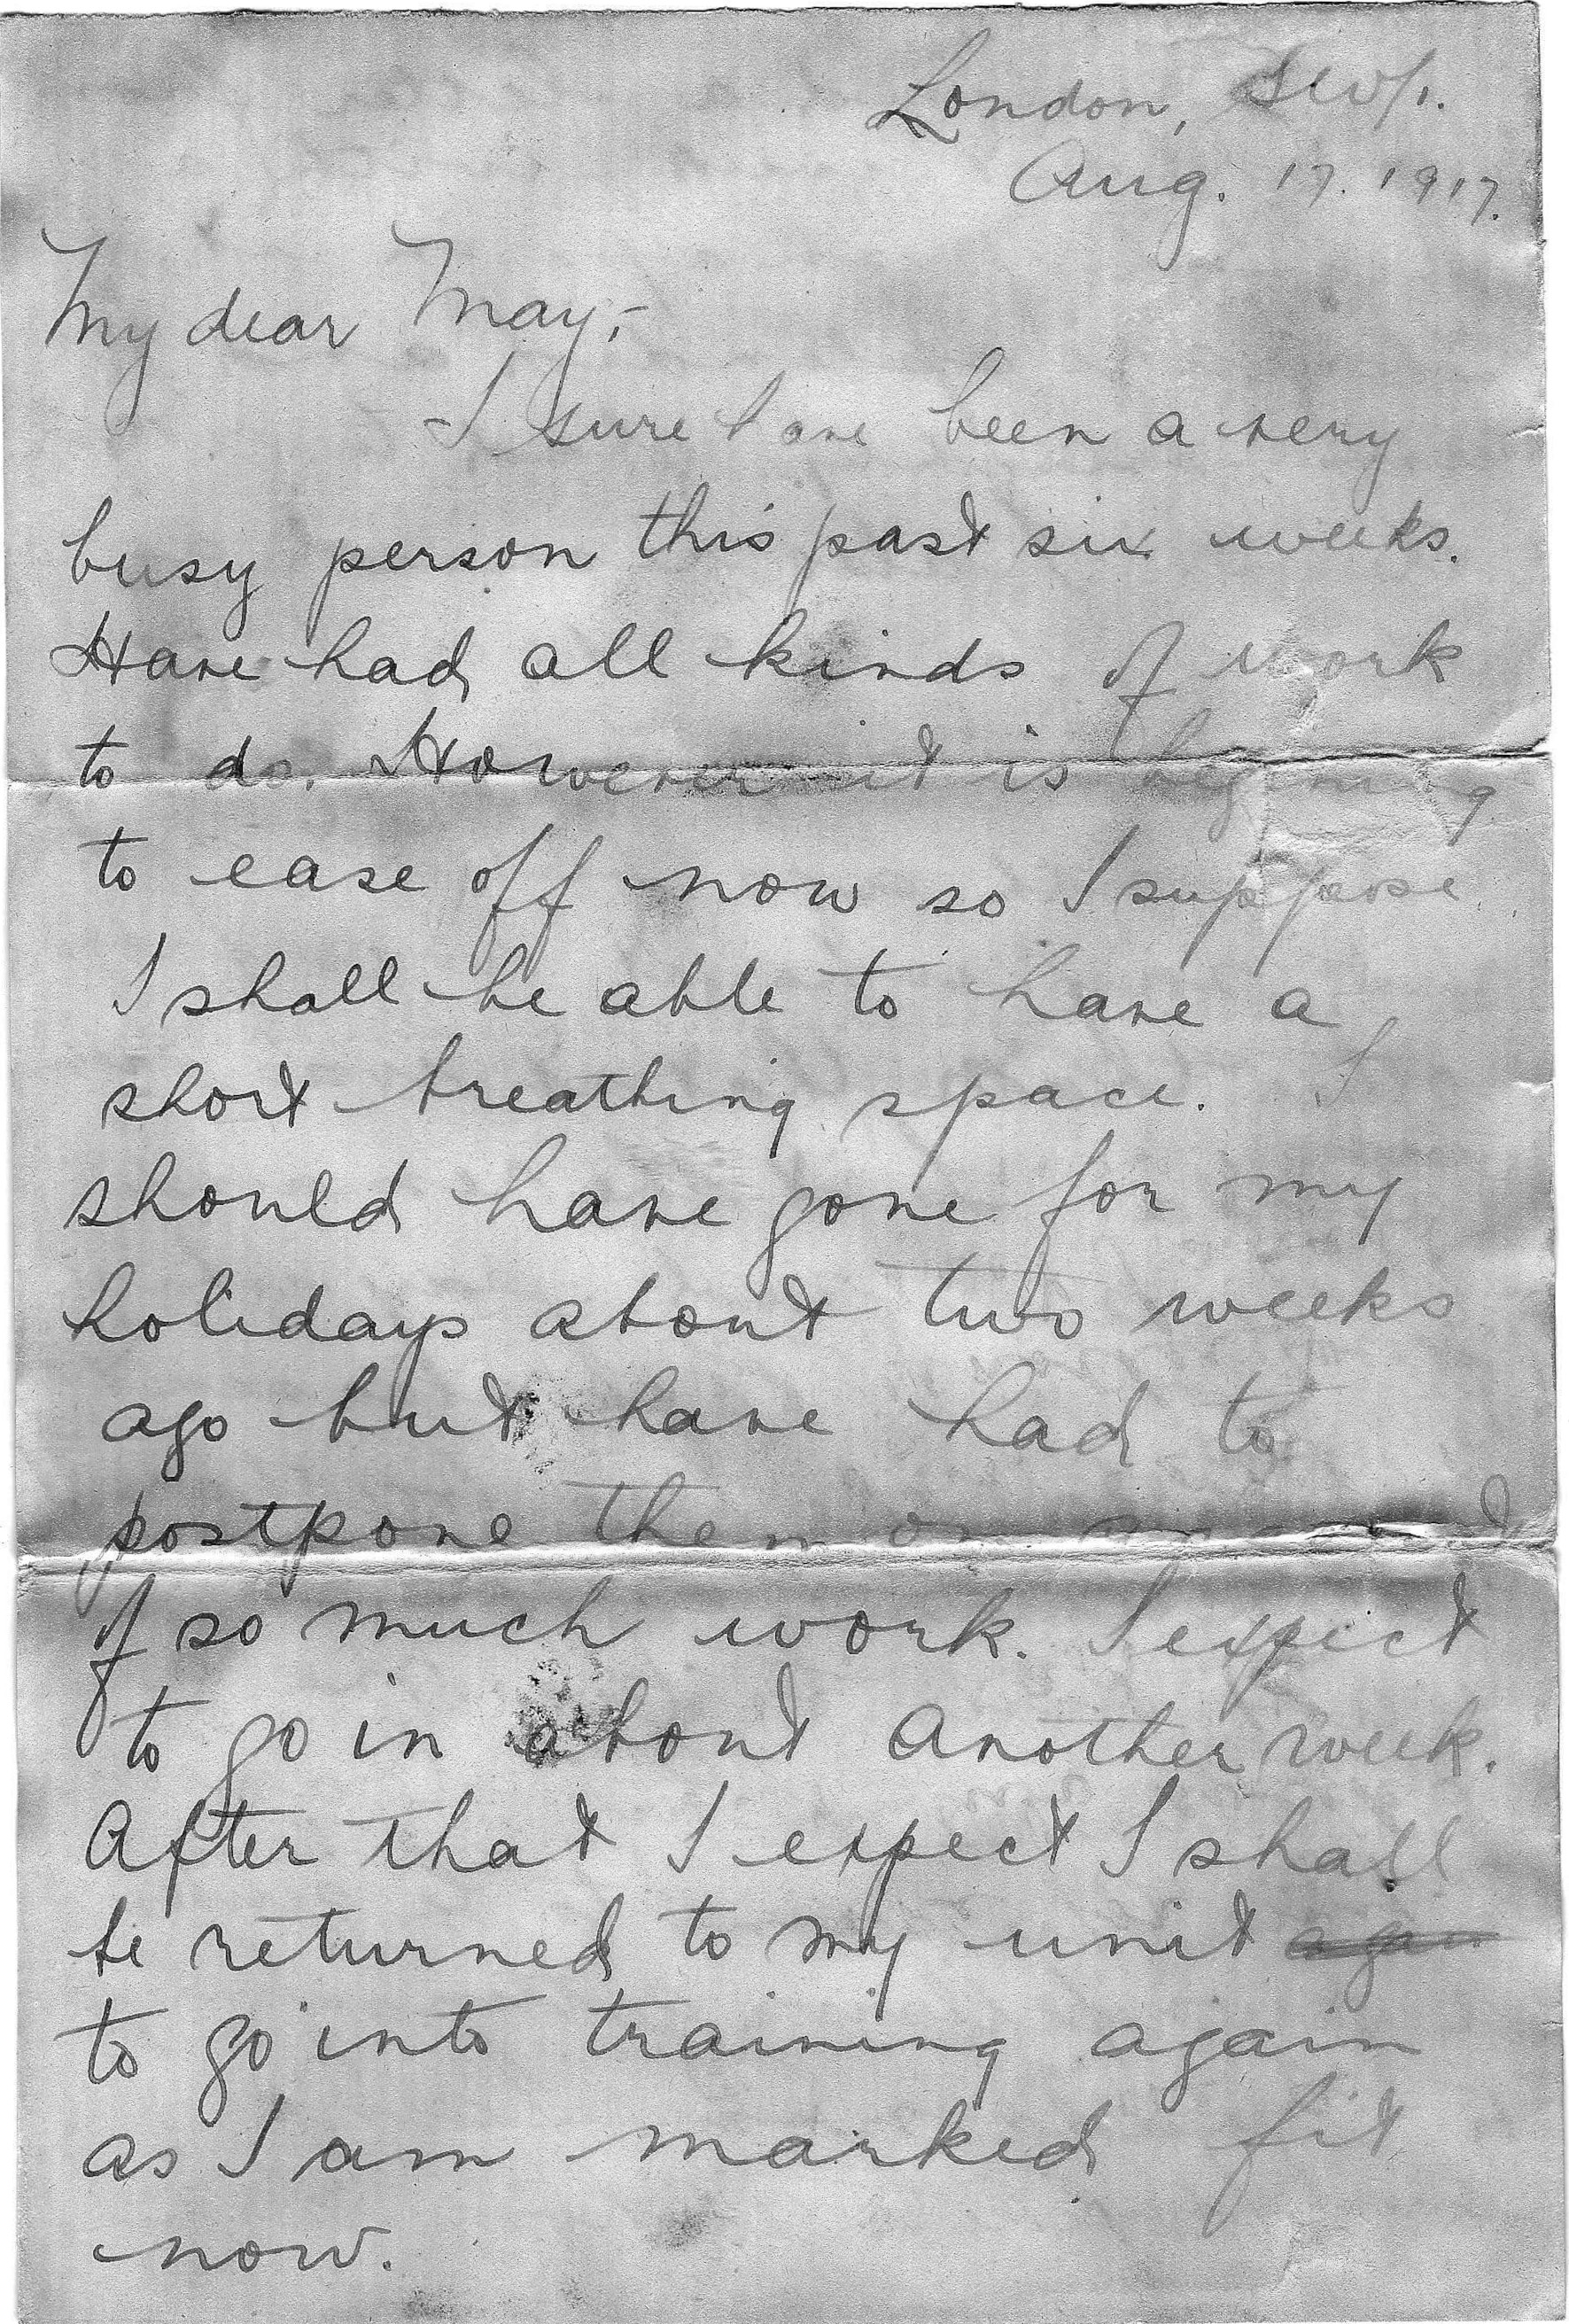 London, SW1.
Aug. 17. 1917.
My dear May,-
I sure have been a very
busy person this past six weeks.
Have had all kinds of work
to do. However it is begining
to ease off now so I suppose
I shall be able to have a
short breathing space. I
should have gone for my
holidays about two weeks
ago but have had to
postpone them on
of so much work. I expect
to go in about another week.
After that I expect I shall
be returned to my unit again
to go into training again
as I am marked fit
now.